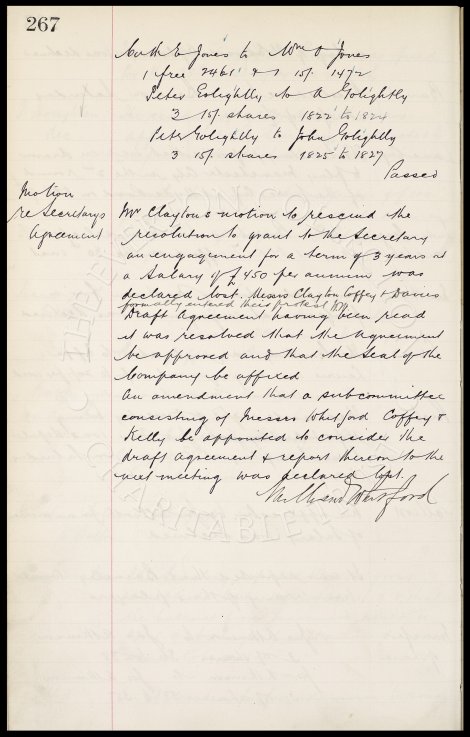 267
E Jones to Wm Jones
1 free 2461 & 1 15/. 1472
Peter Golightly to A Golightly
3 15/. shares 1822 to 1824
Peter Golightly to John Golightly
3 15/. shares 1825 to 1827
Passed
Motion
re Secretarys
Agreement
Mr Clayton's motion to rescind the
resolution to grant to the Secretary
an engagement for a term of 3 years at
a Salary of £450 per annum was
declared lost. Messrs Clayton Coffey & Davies
formally entered their protest
Draft Agreement having been read
it was resolved that the Agreement
be approved and that the Seal of the
Company be affixed
An amendment that a subcommittee
consisting of Messrs Whitford Coffey &
Kelly be appointed to consider the
draft agreement & report thereon to the
next meeting was declared lost.
Whitford
CHARITABLE